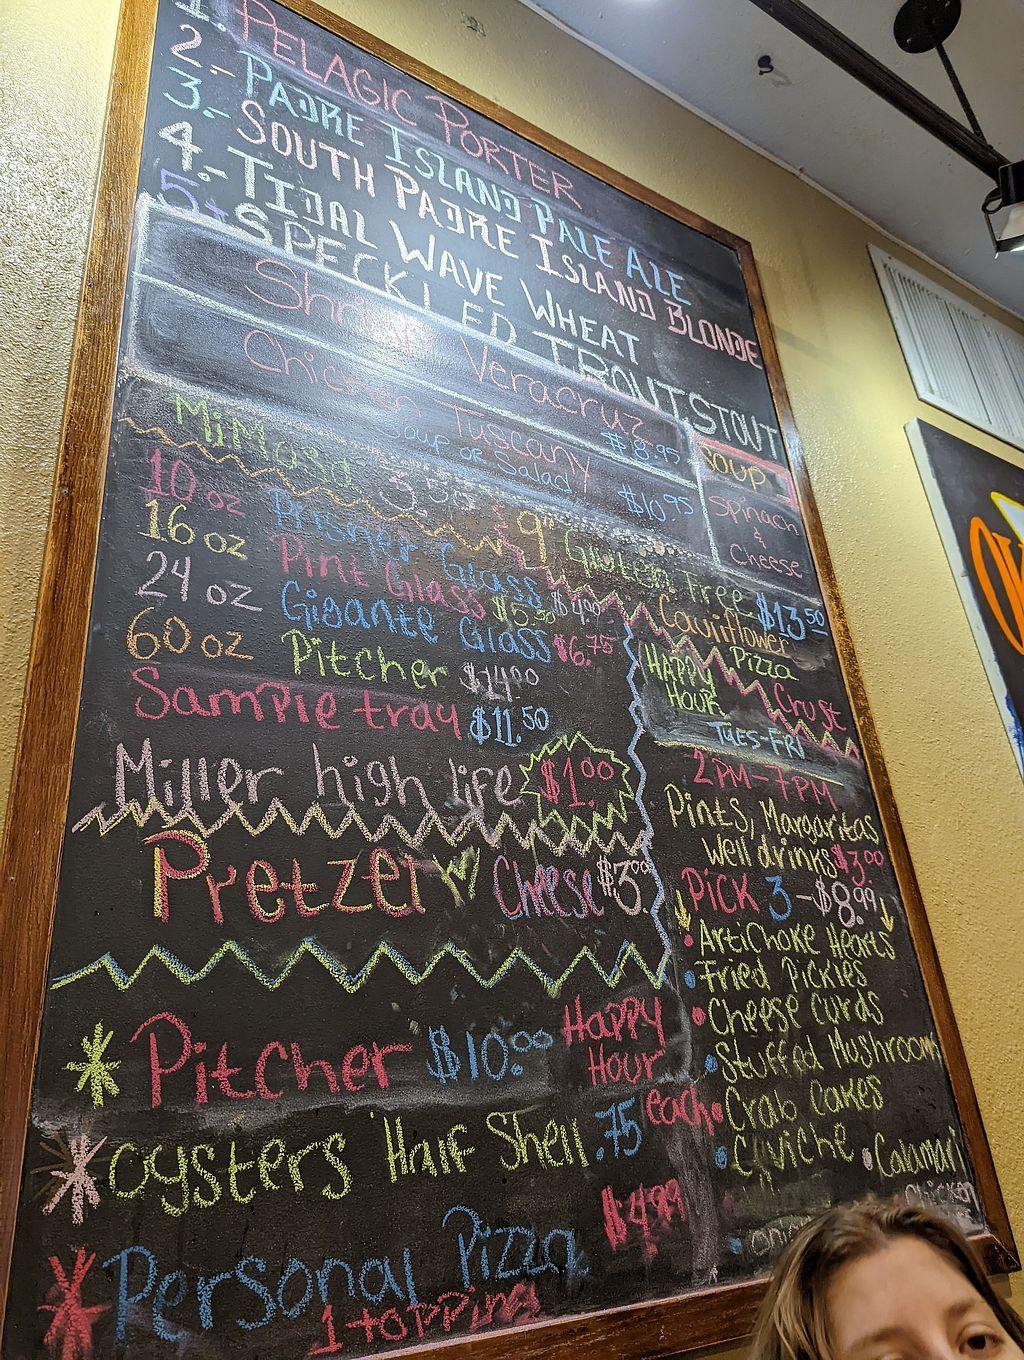 1. PELAGIC PORTER
2.- PADRE ISLAND PALE ALE
3.- SOUTH PADRE ISLAND BLONDE
4.- TIDAL WAVE WHEAT
5. SPECKLED TROUT STOUT
Shrimp Veracruz $8.95
Chicken Tuscany
Soup or Salad $10.95
SOUP
Spinach
&
Cheese
MiMosa 3.50 & 9
10 oz Prisner Glass $4.00
16 oz Pint Glass $5.50
24 oz Gigante Glass $6.75
60 oz Pitcher $14.00
Sample tray $11.50
Gluten Free $13.50
Cauliflower
Pizza
Crust
Miller high life $1.00
Pretzel w Cheese $3.00
HAPPY
HOUR
TUES-FRI
2PM-7PM
Pints, Margaritas
Well drinks $3.00
PiCK 3-$8.99
ArtiChoke Hearts
Fried Pickles
Cheese Curds
Stuffed Mushroom
Crab Cakes
Civiche Calamari
Chicken
Pitcher $10.00 Happy
Hour
Oysters Half Shell .75 each
Personal Pizza $4.99
1 topping